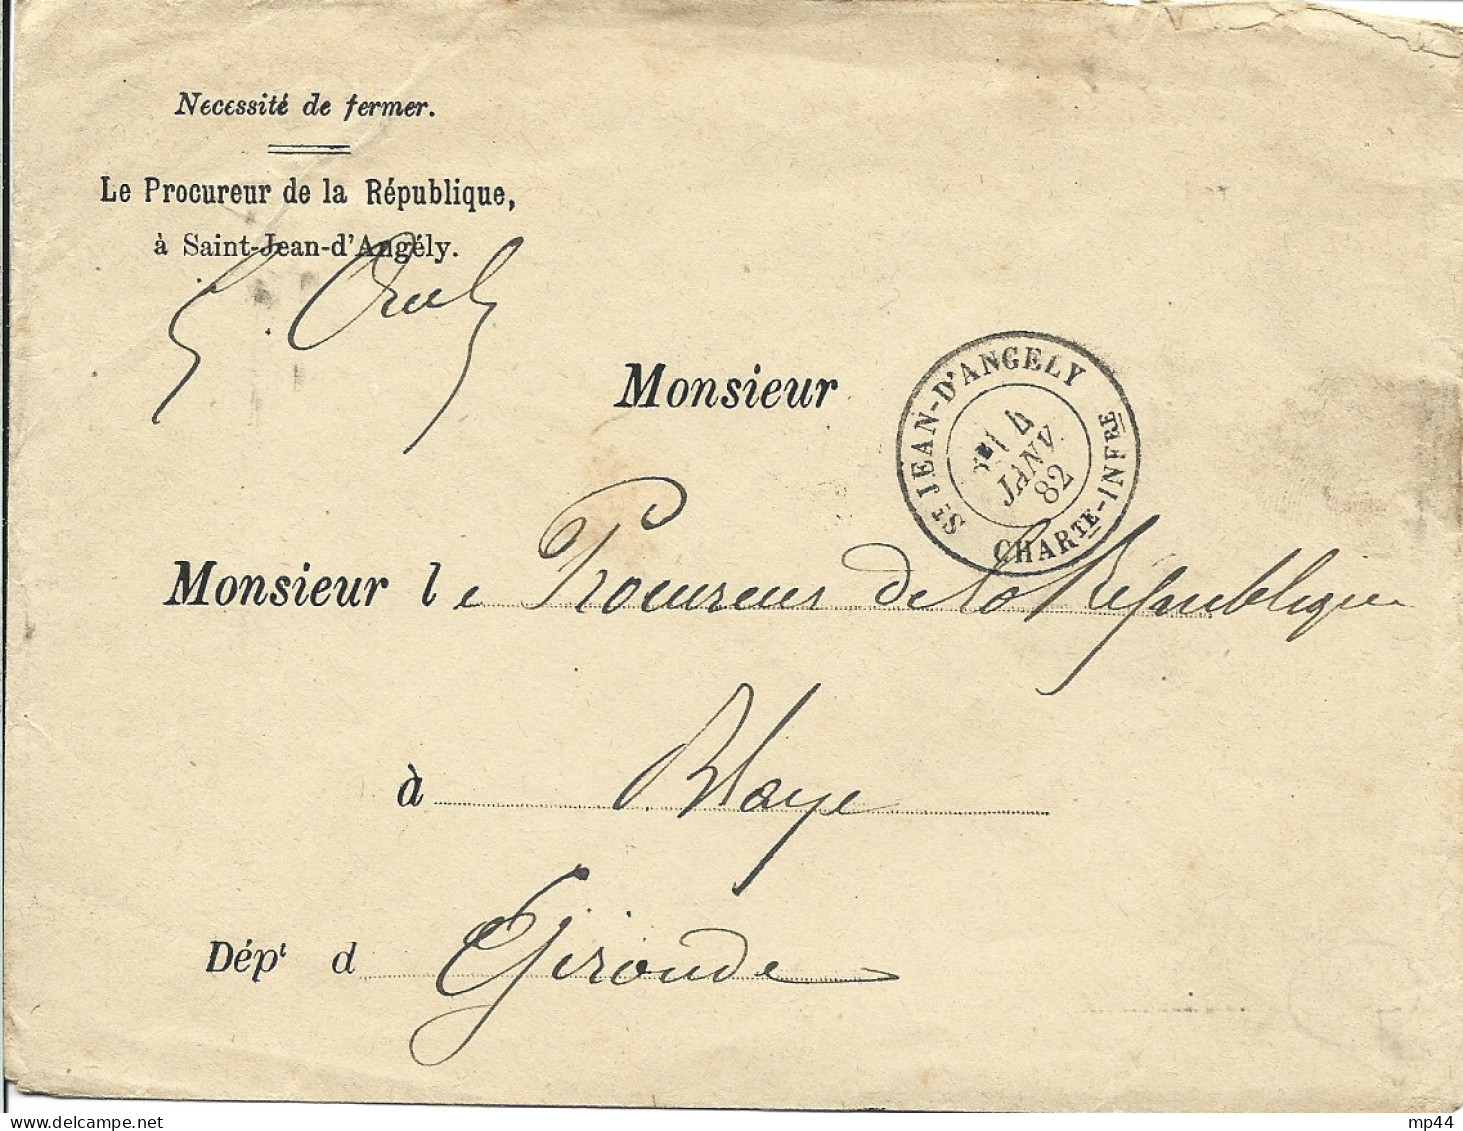 Necessité de fermer.
Le Procureur de la République,
à Saint-Jean-d'Angély.
Monsieur
ST JEAN-D'ANGELY
4
JANV.
82
CHARTE-INFRE
Monsieur le Procureur de la République
à Blaye
Dépt d Gironde
www.delcampe.net
mp44